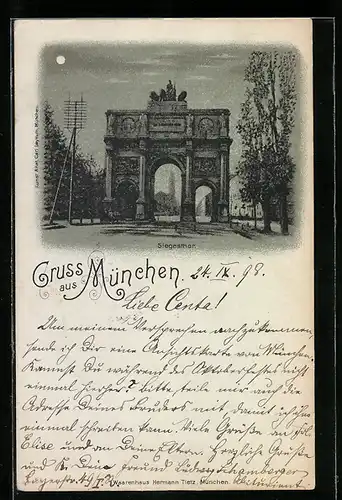 Siegesthor.
Gruss aus München.
24. IX. 98.
Liebe Centa!
Um meinem Versprechen nachzukommen,
sende ich Dir eine Ansichtskarte von München.
Kannst Du während des Oktoberfestes nicht
einmal hierher? bitte, teile mir auch die
Adresse Deines Bruders mit, damit ich ihm
einmal schreiben kann. Viele Grüße an Frl.
Elise und an Deine Eltern. Herzliche Grüße
und K. Dein Freund
Lagerstr. 49
Waarenhaus Hermann Tietz, München.
Kunst Anst. Carl München.